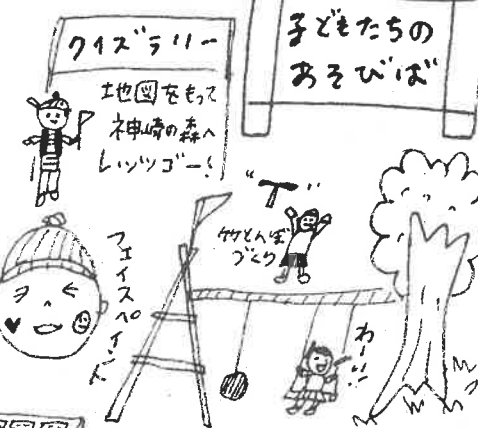 クイズラリー
地図をもって
神崎の森へ
レッツゴー!
子どもたちの
あそびば
竹とんぼ
づくり
フェイスペイント
わーい!!